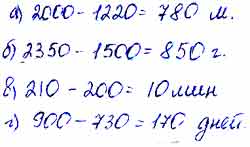 а) 2000 - 1220 = 780 м.
б) 2350 - 1500 = 850 г.
в) 210 - 200 = 10 мин
г) 900 - 730 = 170 дней.